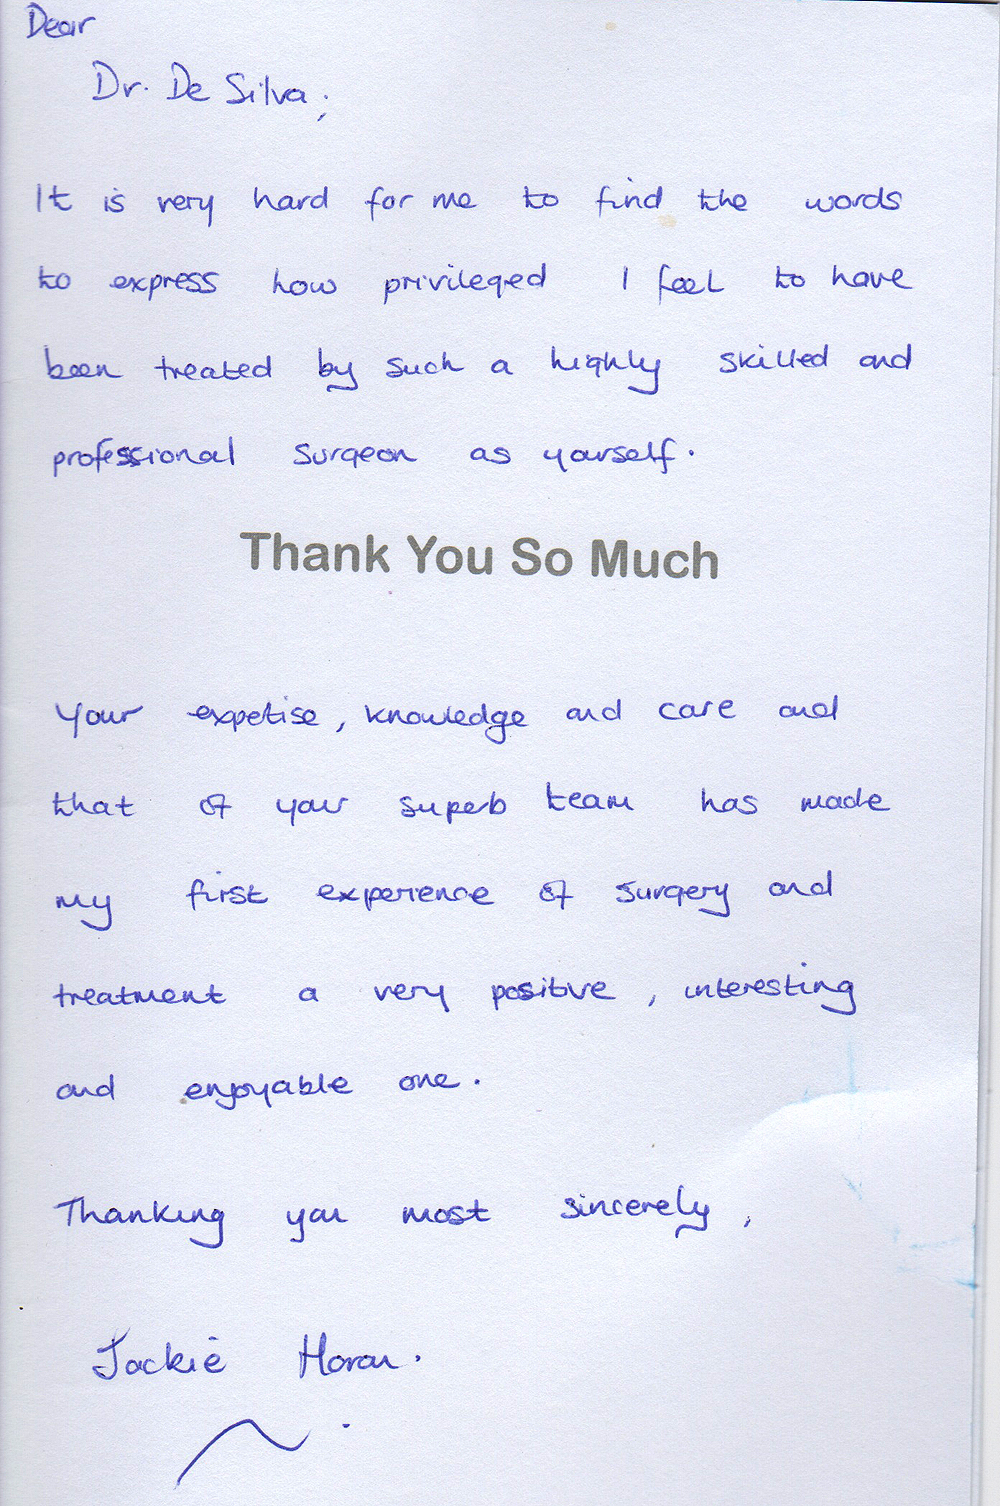 Dear
Dr. De Silva,
It is very hard for me to find the words
to express how privileged I feel to have
been treated by such a highly skilled and
professional surgeon as yourself.
Thank You So Much
Your expetise, knowledge and care and
that of your superb team has made
my first experience of surgery and
treatment a very positive, interesting
and enjoyable one.
Thanking you most sincerely,
Jackie Horan.